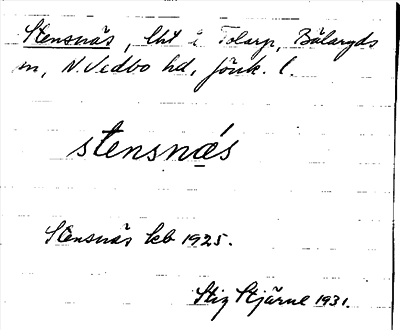 Stensnäs, lht i Tolarp, Bälaryds
sn, N. Vedbo hd, Jönk. l.
stensnǽs
Stensnäs kb 1925.
Stig Stjärne 1931.